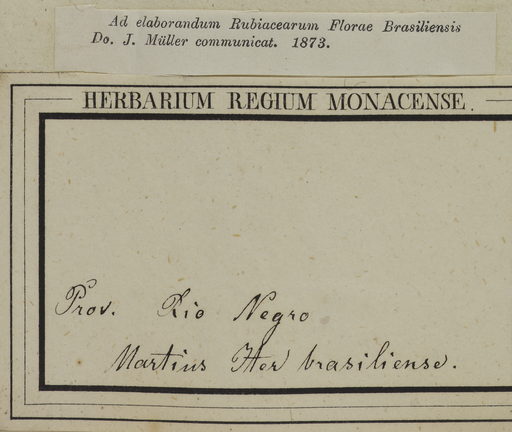 Ad elaborandum Rubiacearum Florae Brasiliensis
Do. J. Müller communicat. 1873.
HERBARIUM REGIUM MONACENSE.
Prov. Rio Negro
Martius Iter brasiliense.